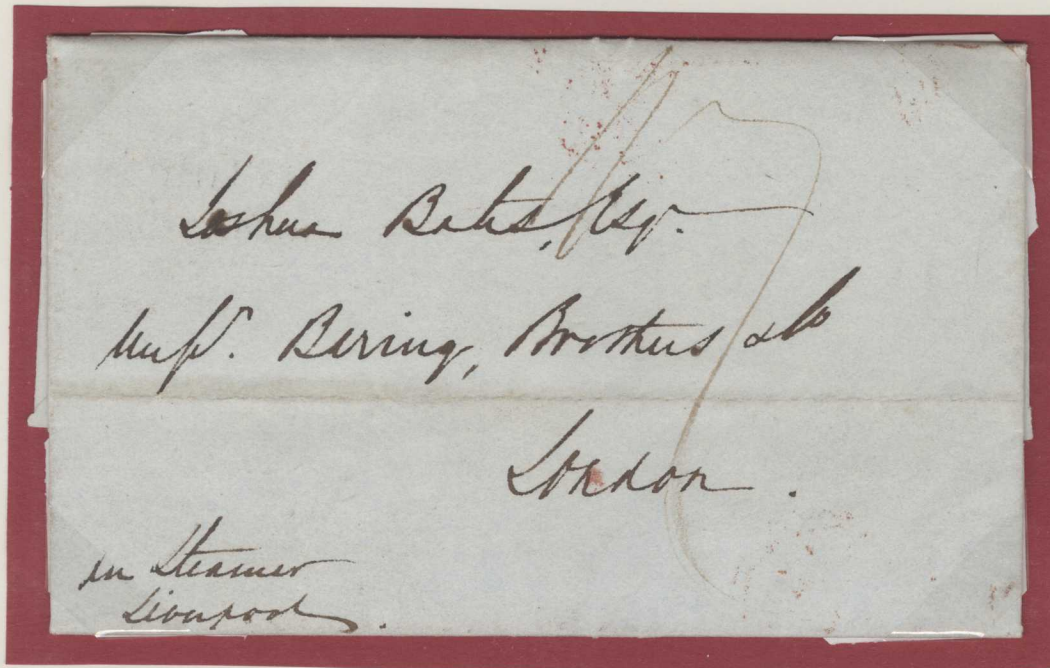 Joshua Bates, Esqr.
Messrs. Baring, Brothers & Co
London.
1/7
per Steamer
Liverpool.